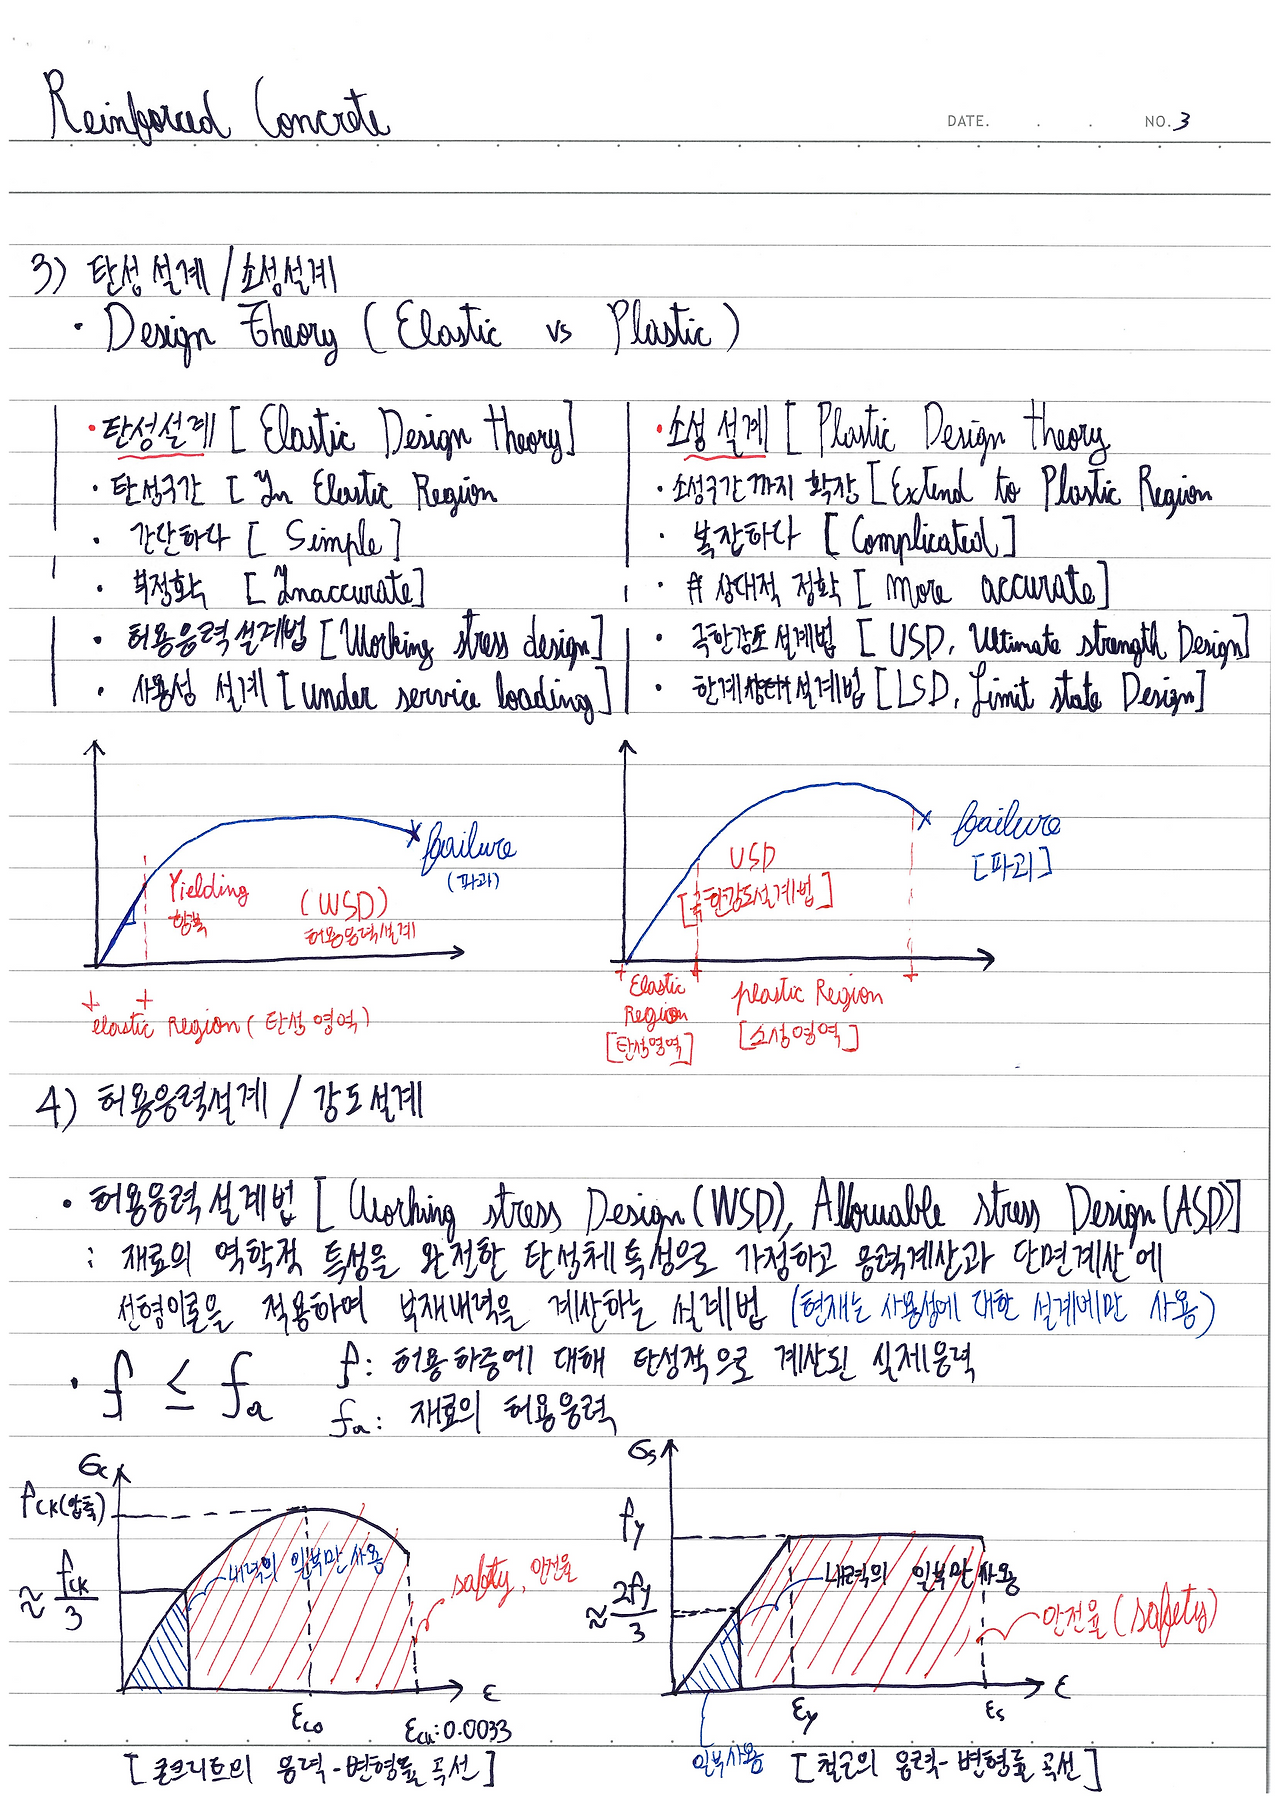 Reinforced Concrete
DATE. . . NO. 3
3) 탄성설계 / 소성설계
· Design Theory ( Elastic vs Plastic )
· 탄성설계 [ Elastic Design theory ]
· 탄성구간 [ In Elastic Region
· 간단하다 [ Simple ]
· 부정확 [ Inaccurate ]
· 허용응력설계법 [ Working stress design ]
· 사용성 설계 [ under service loading ]
· 소성 설계 [ Plastic Design theory
· 소성구간까지 확장 [ Extend to Plastic Region
· 복잡하다 [ Complicated ]
· 상대적 정확 [ more accurate ]
· 극한강도설계법 [ USD, Ultimate strength Design ]
· 한계상태설계법 [ LSD, Limit state Design ]
failure
(파괴)
Yielding
항복
(WSD)
허용응력설계
elastic Region ( 탄성 영역 )
failure
[ 파괴 ]
USD
[ 극한강도설계법 ]
Elastic
Region
[ 탄성영역 ]
plastic Region
[ 소성영역 ]
4) 허용응력설계 / 강도설계
· 허용응력 설계법 [ Working stress Design (WSD), Allowable stress Design (ASD) ]
: 재료의 역학적 특성을 완전한 탄성체 특성으로 가정하고 응력계산과 단면계산에
선형이론을 적용하여 부재내력을 계산하는 설계법 (현재는 사용성에 대한 설계에만 사용)
· f ≤ fa f: 허용하중에 대해 탄성적으로 계산된 실제응력
fa: 재료의 허용응력
σc
fck(압축)
≈ fck/3
내력의 일부만 사용
safety, 안전율
ε
εco
εcu: 0.0033
[ 콘크리트의 응력-변형률 곡선 ]
σs
fy
≈ 2fy/3
내력의 일부만 사용
안전율 ( safety )
ε
εy
εs
일부사용
[ 철근의 응력-변형률 곡선 ]